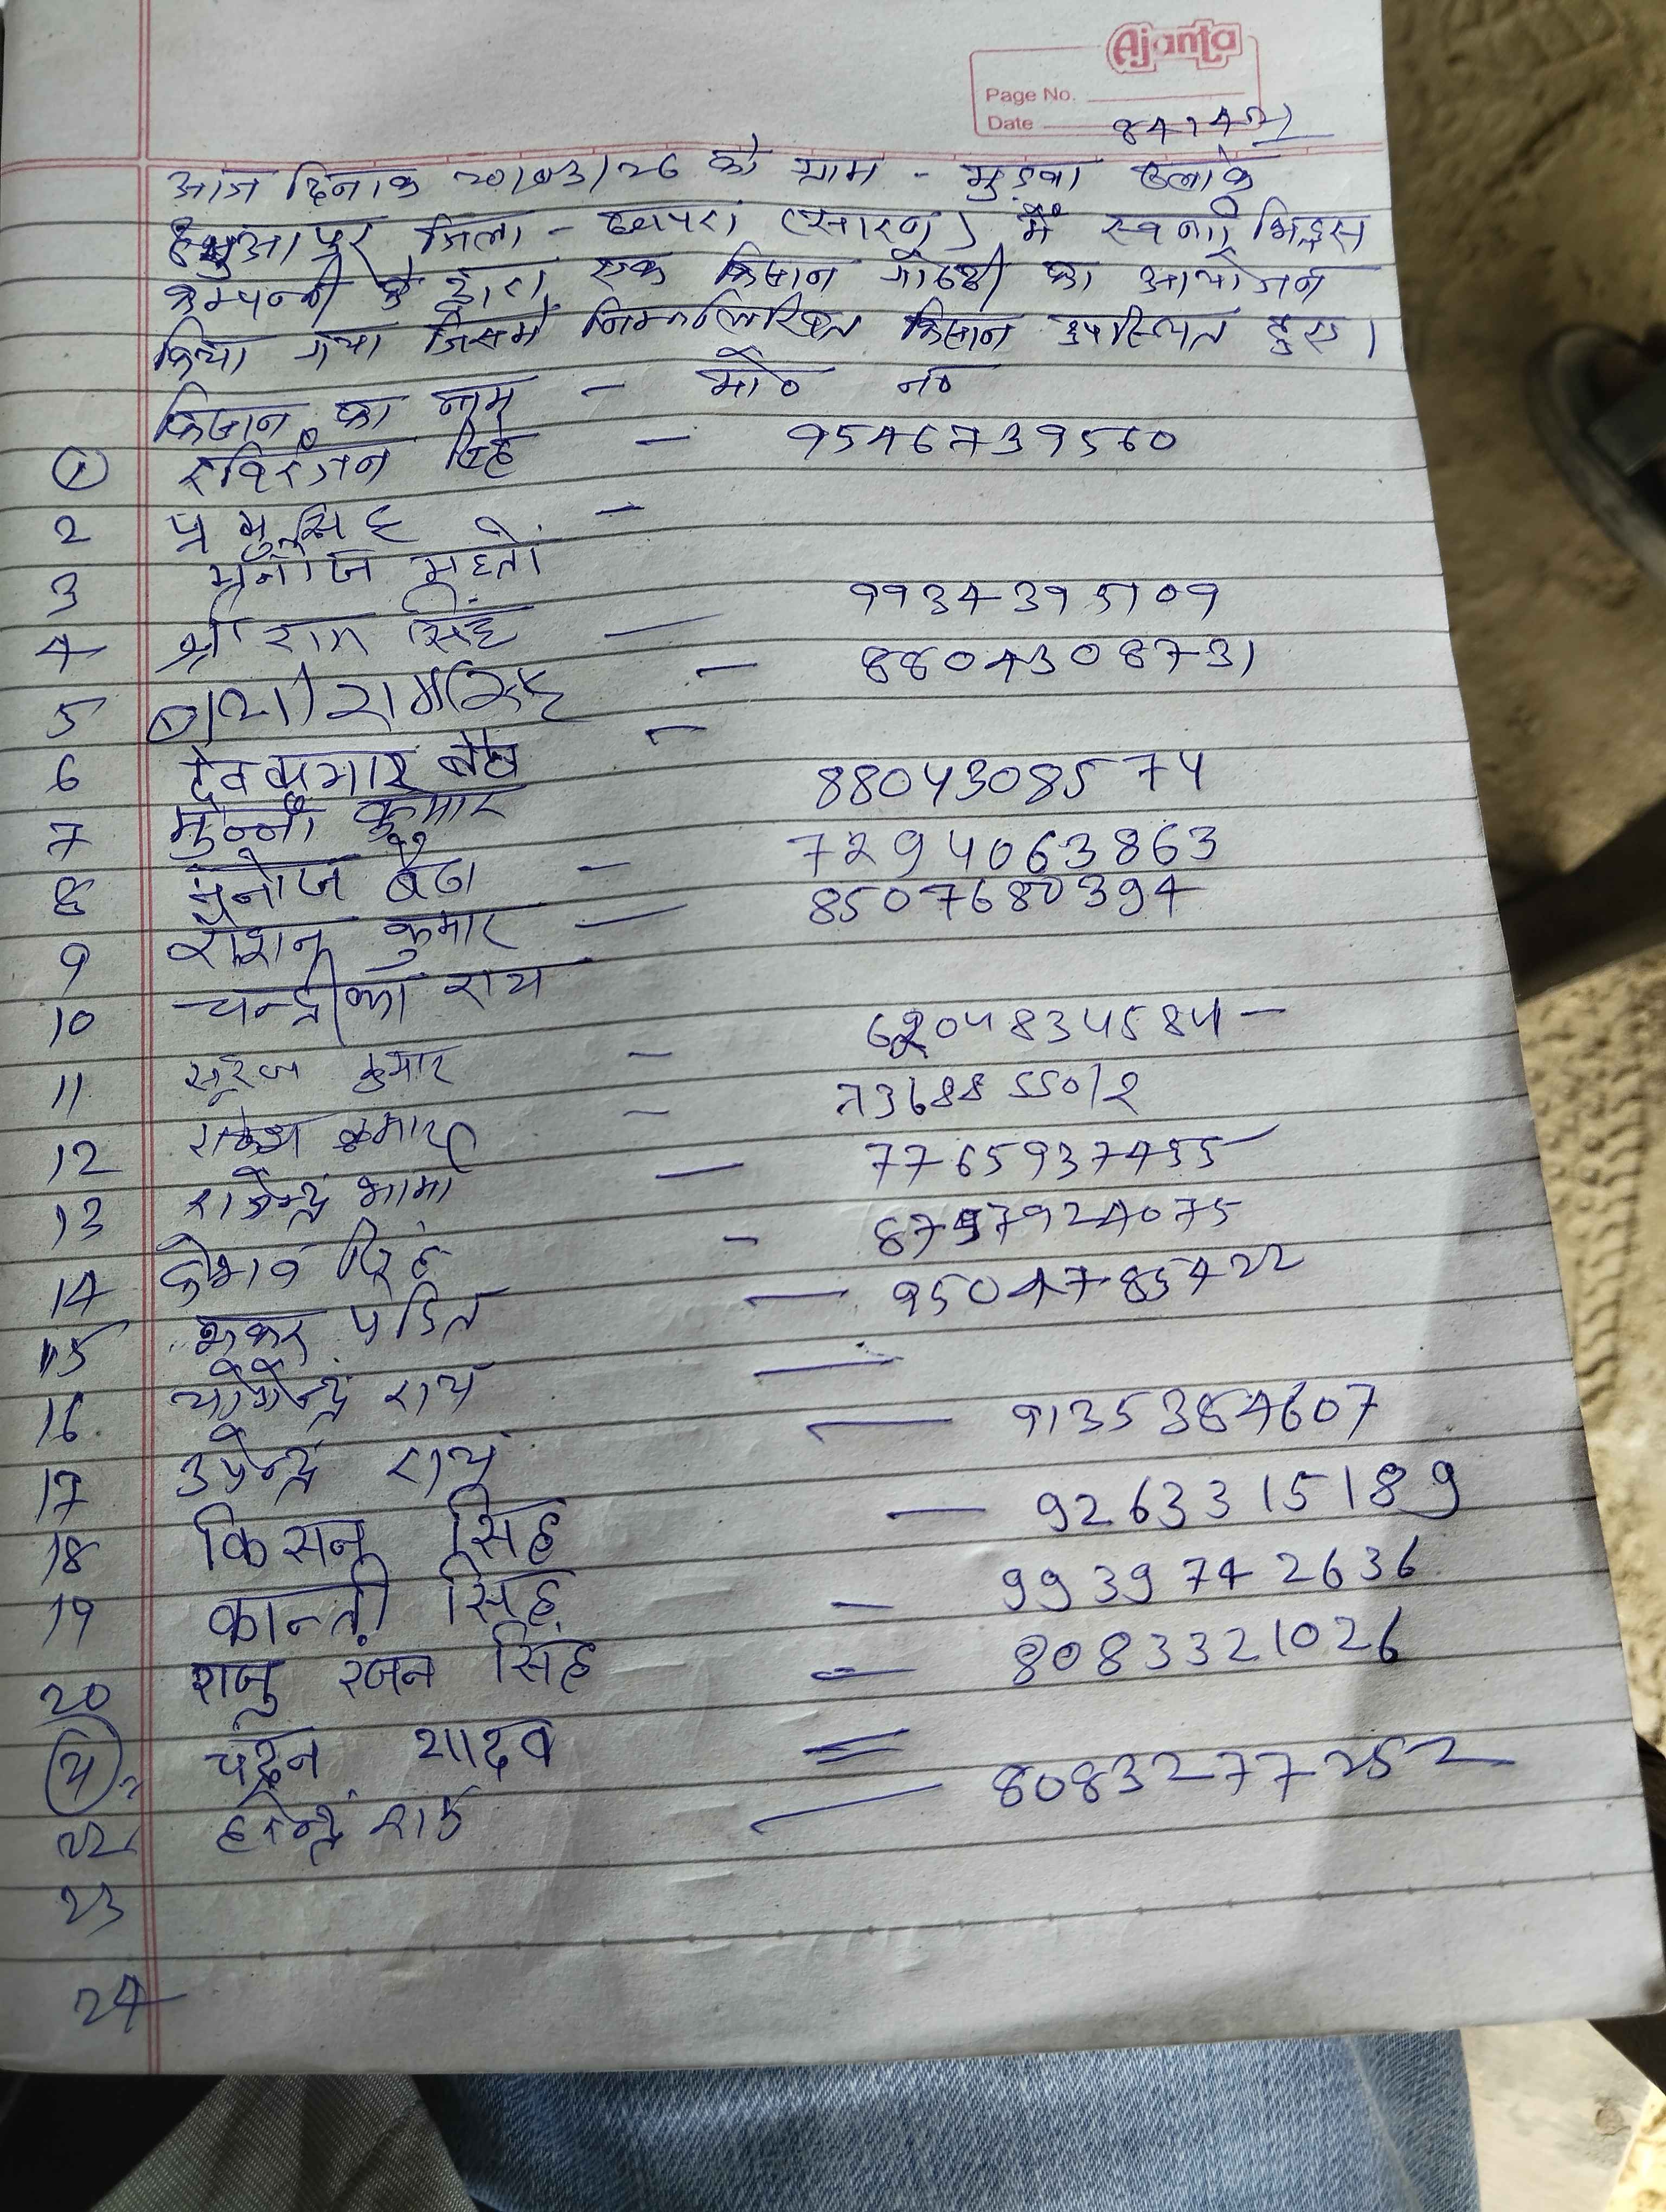 Ajanta
Page No.
Date 841421
आज दिनाक 20/03/26 को ग्राम - मुड़वा
जिला - छपरा (सारन) में स्वर्णा
कम्पनी के द्वारा एक किसान गोष्ठी का आयोजन
किया गया जिसमें निम्नलिखित किसान उपस्थित हुए।
किसान का नाम - मो० न०
1 रविरंजन सिंह - 9546739560
2 प्रभु सिंह -
3 मनोज महतो
4 श्री राम सिंह — 9934395109
5 - 8804308731
6 देवकुमार -
7 मुन्ना कुमार 8804308574
8 मनोज बैठा - 7294063863
9 रौशन कुमार — 8507680394
10 चन्द्रीका राय
11 सूरज कुमार - 6204834584 -
12 राकेश कुमार - 7368855012
13 राजेन्द्र शर्मा — 7765937455
14 केशव सिंह - 924075
15 शंकर पंडित — 9504785422
16 योगेन्द्र राय —
17 उपेन्द्र राय — 9135384607
18 किसन सिंह — 9263315189
19 कान्ती सिंह - 9939742636
20 राजु रंजन सिंह = 8083321026
चंदन यादव =
22 हरेन्द्र राय — 8083277252
23
24